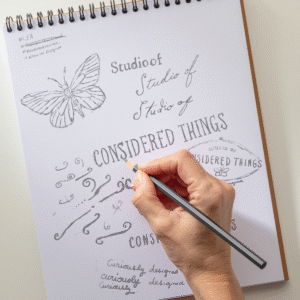 Studio of
Studio of
Studio of
CONSIDERED THINGS
STUDIO OF
CONSIDERED THINGS
CONS
Curiously designed
curiously designed
Curiously